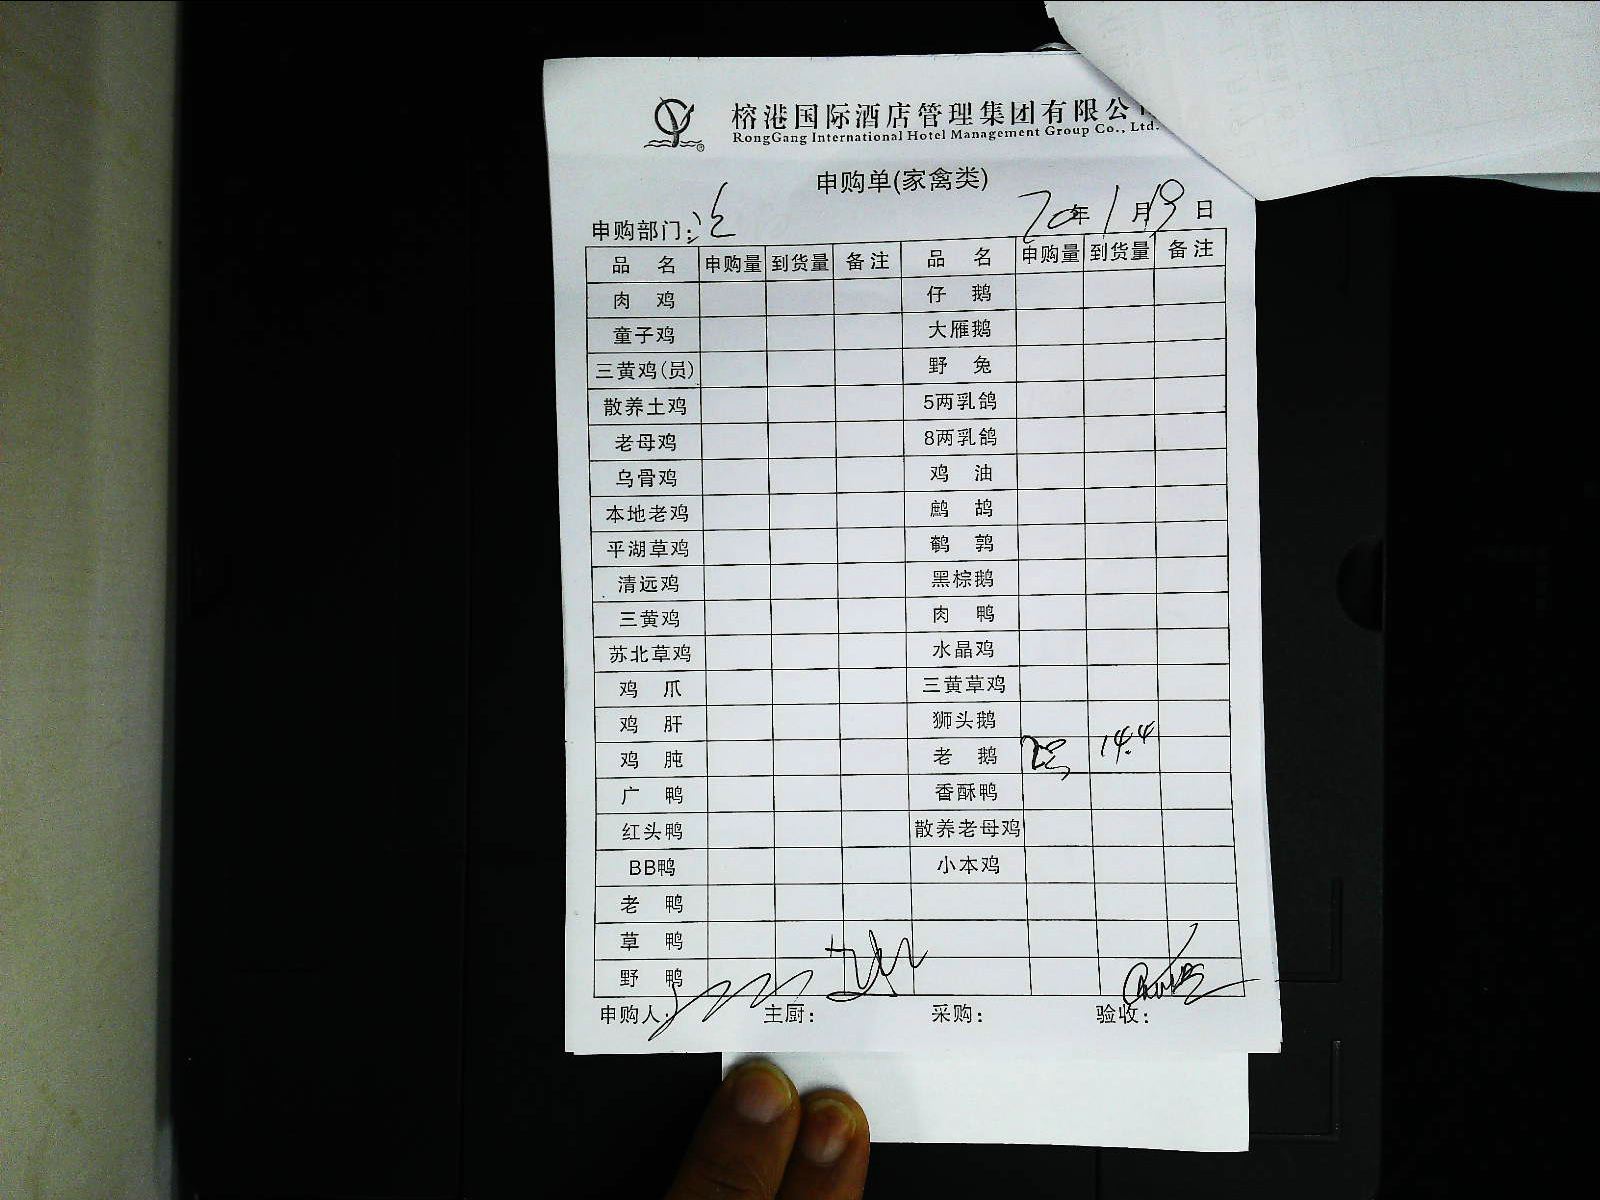 榕港国际酒店管理集团有限公
RongGang International Hotel Management Group Co., Ltd.
申购单(家禽类)
申购部门: 年1月19日
品名 申购量 到货量 备注 品名 申购量 到货量 备注
肉鸡 仔鹅
童子鸡 大雁鹅
三黄鸡(员) 野兔
散养土鸡 5两乳鸽
老母鸡 8两乳鸽
乌骨鸡 鸡油
本地老鸡 鹧鸪
平湖草鸡 鹌鹑
清远鸡 黑棕鹅
三黄鸡 肉鸭
苏北草鸡 水晶鸡
鸡爪 三黄草鸡
鸡肝 狮头鹅
鸡肫 老鹅 14.4
广鸭 香酥鸭
红头鸭 散养老母鸡
BB鸭 小本鸡
老鸭
草鸭
野鸭
申购人: 主厨: 采购: 验收: